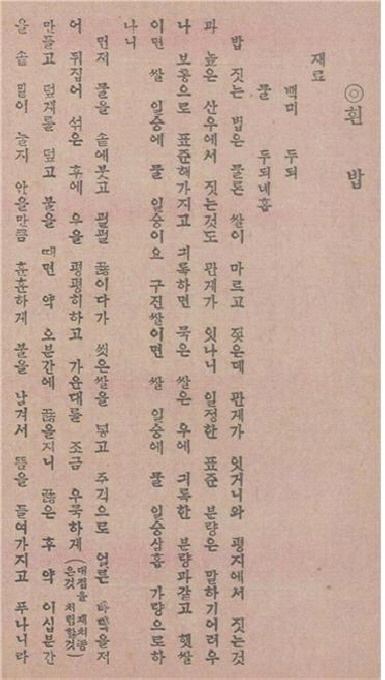 ◎흰 밥
재료
백미 두되
물 두되네홉
밥 짓는 법은 물론 쌀이 마르고 젖은데 관게가 잇거니와 평지에서 짓는것
과 높은 산우에서 짓는것도 관게가 잇나니 일정한 표준 분량은 말하기어려우
나 보통으로 표준해가지고 긔록하면 묵은 쌀은 우에 긔록한 분량과같고 햇쌀
이면 쌀 일승에 물 일승이요 구진쌀이면 쌀 일승에 물 일승삼홉 가량으로하
나니
먼저 물을 솥에붓고 펄펄 끓이다가 씻은쌀을 넣고 주걱으로 얼른 바닥을저
어 뒤집어 섞은 후에 우을 평평히하고 가운대를 조금 우묵하게(대접을 재처놓은것 처럼할것)
만들고 덮개를 덮고 불을 때면 약 오분간에 끓을지니 끓은 후 약 이십분간
을 솥 밑이 눌지 안을만큼 훈훈하게 불을 남겨서 뜸을 들여가지고 푸나니라